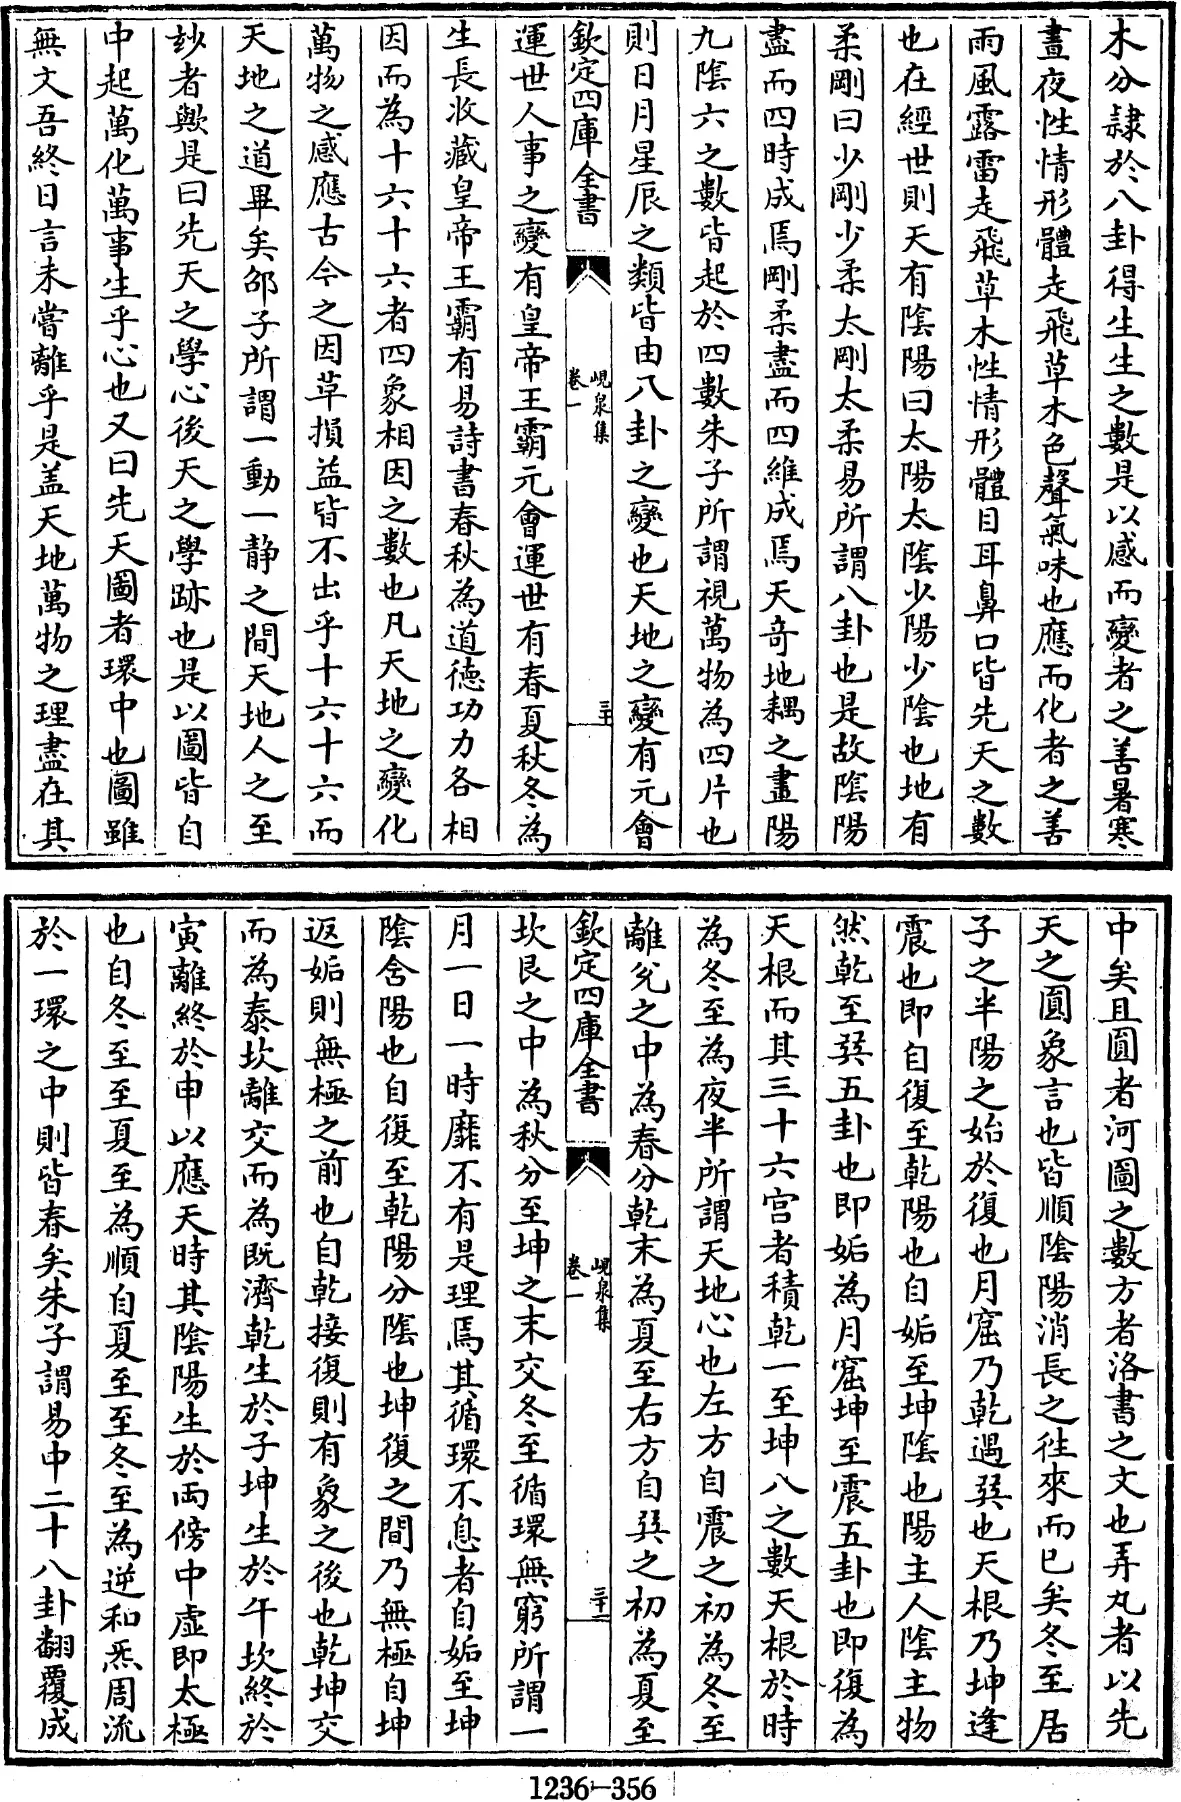 木分隷於八卦得生生之數是以感而變者之善暑寒
晝夜性情形體走飛草木色聲氣味也應而化者之善
雨風露雷走飛草木性情形體目耳鼻口皆先天之數
也在經世則天有陰陽曰太陽太陰少陽少陰也地有
柔剛曰少剛少柔太剛太柔易所謂八卦也是故陰陽
盡而四時成焉剛柔盡而四維成焉天竒地耦之畫陽
九陰六之數皆起於四數朱子所謂視萬物為四片也
則日月星辰之類皆由八卦之變也天地之變有元會
欽定四庫全書
峴泉集
卷一
三十
運世人事之變有皇帝王霸元會運世有春夏秋冬為
生長收藏皇帝王霸有易詩書春秋為道德功力各相
因而為十六十六者四象相因之數也凡天地之變化
萬物之感應古今之因革損益皆不出乎十六十六而
天地之道畢矣邵子所謂一動一静之間天地人之至
玅者歟是曰先天之學心後天之學跡也是以圖皆自
中起萬化萬事生乎心也又曰先天圖者環中也圖雖
無文吾終日言未嘗離乎是盖天地萬物之理盡在其
中矣且圓者河圖之數方者洛書之文也弄丸者以先
天之圓象言也皆順陰陽消長之徃來而已矣冬至居
子之半陽之始於復也月窟乃乾遇巽也天根乃坤逢
震也即自復至乾陽也自姤至坤陰也陽主人陰主物
然乾至巽五卦也即姤為月窟坤至震五卦也即復為
天根而其三十六宫者積乾一至坤八之數天根於時
為冬至為夜半所謂天地心也左方自震之初為冬至
離兊之中為春分乾末為夏至右方自巽之初為夏至
欽定四庫全書
峴泉集
卷一
三十一
坎艮之中為秋分至坤之末交冬至循環無窮所謂一
月一日一時靡不有是理焉其循環不息者自姤至坤
陰含陽也自復至乾陽分陰也坤復之間乃無極自坤
返姤則無極之前也自乾接復則有象之後也乾坤交
而為泰坎離交而為既濟乾生於子坤生於午坎終於
寅離終於申以應天時其陰陽生於兩傍中虚即太極
也自冬至至夏至為順自夏至至冬至為逆和炁周流
於一環之中則皆春矣朱子謂易中二十八卦翻覆成
1236-356